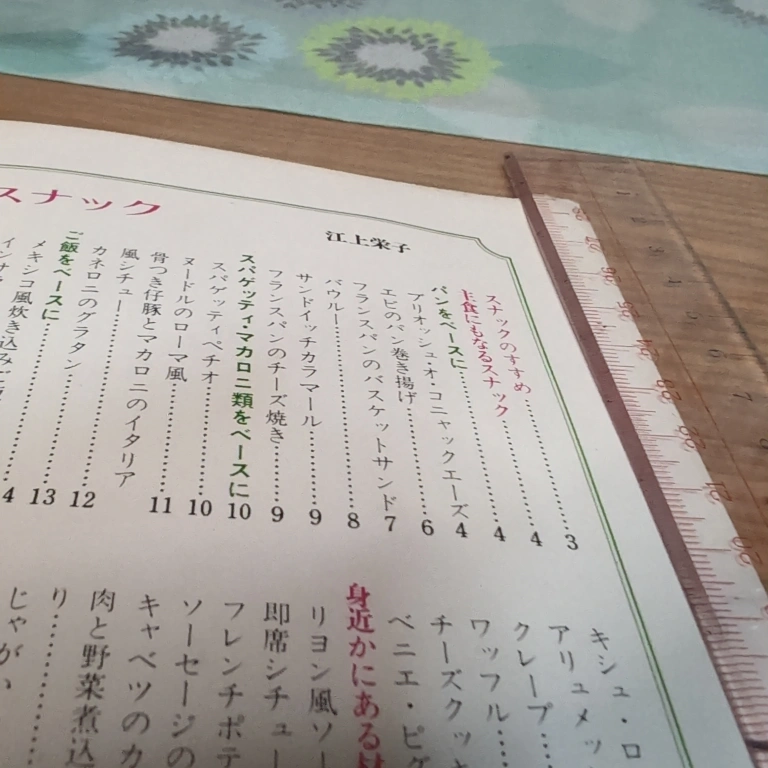 スナック
江上栄子
スナックのすすめ……………3
主食にもなるスナック…………4
パンをベースに………………4
ブリオッシュ・オ・コニャックエーズ 4
エビのパン巻き揚げ…………6
フランスパンのバスケットサンド 7
バウルー……………………8
サンドイッチカラマール………9
フランスパンのチーズ焼き……9
スパゲッティ・マカロニ類をベースに 10
スパゲッティペチオ…………10
ヌードルのローマ風…………11
骨つき仔豚とマカロニのイタリア
風シチュー…………………12
カネロニのグラタン…………13
ご飯をベースに………………4
メキシコ風炊き込み
キシュ・ロ
アリュメッ
クレープ……
ワッフル……
チーズクッキ
ベニエ・ピ
身近かにある
リヨン風ソー
即席シチュー
フレンチポテ
ソーセージの
キャベツのカ
肉と野菜煮込
り……
じゃがい